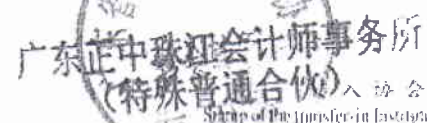 广东正中珠江会计师事务所
(特殊普通合伙)
协会
Stamp of the transfer-in Institute